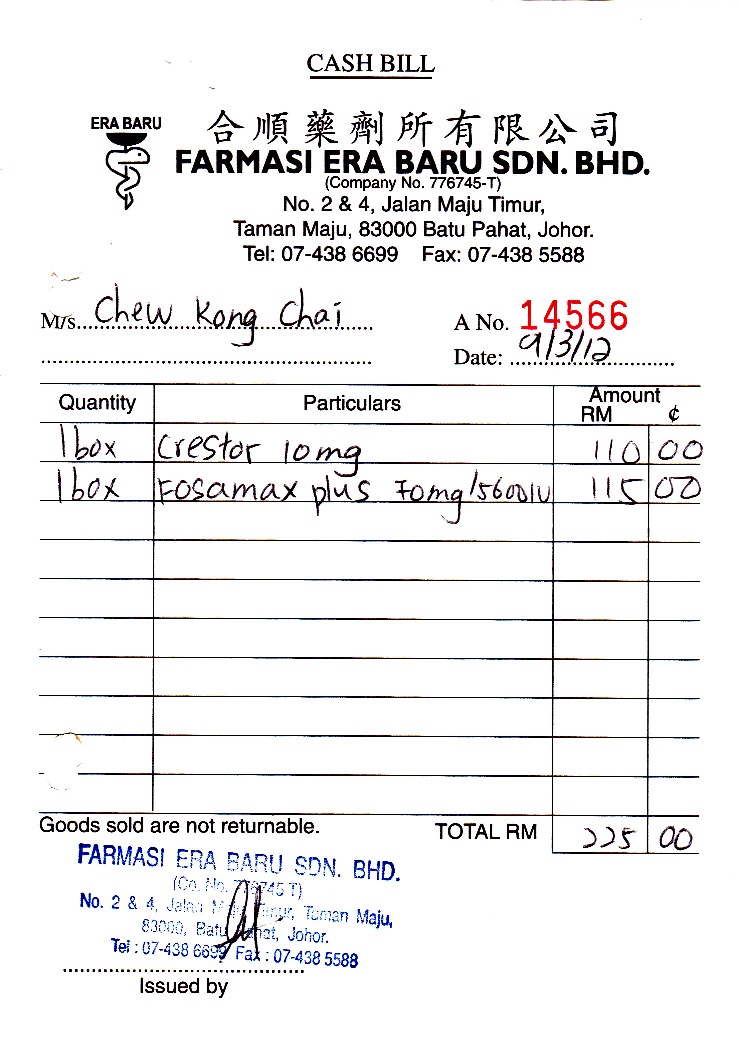 CASH BILL
ERA BARU
合順藥劑所有限公司
FARMASI ERA BARU SDN. BHD.
(Company No. 776745-T)
No. 2 & 4, Jalan Maju Timur,
Taman Maju, 83000 Batu Pahat, Johor.
Tel: 07-438 6699 Fax: 07-438 5588
M/s. Chew Kong Chai
A No. 14566
Date: 9/3/12
Quantity Particulars Amount
RM ¢
1 box Crestor 10mg 110 00
1 box Fosamax plus 70mg/5600IU 115 00
Goods sold are not returnable. TOTAL RM 225 00
FARMASI ERA BARU SDN. BHD.
(Co. No. 776745 T)
No. 2 & 4, Jalan Maju Timur, Taman Maju,
83000, Batu Pahat, Johor.
Tel : 07-438 6699 Fax : 07-438 5588
Issued by